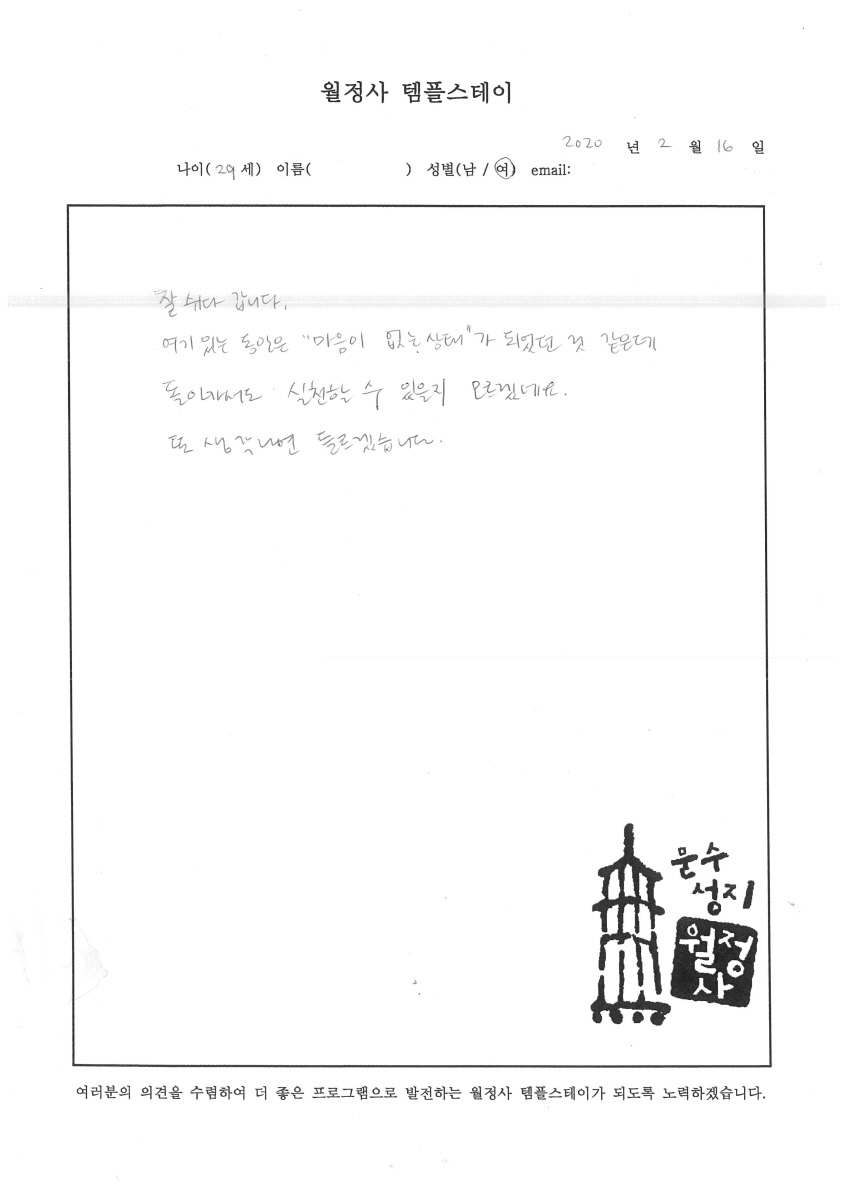 월정사 템플스테이
2020 년 2 월 16 일
나이( 29 세) 이름( ) 성별(남 / 여) email:
잘 쉬다 갑니다.
여기 있는 동안은 "마음이 없는 상태"가 되었던 것 같은데
돌아가서도 실천할 수 있을지 모르겠네요.
또 생각나면 들르겠습니다.
문수
성지
월정
사
여러분의 의견을 수렴하여 더 좋은 프로그램으로 발전하는 월정사 템플스테이가 되도록 노력하겠습니다.